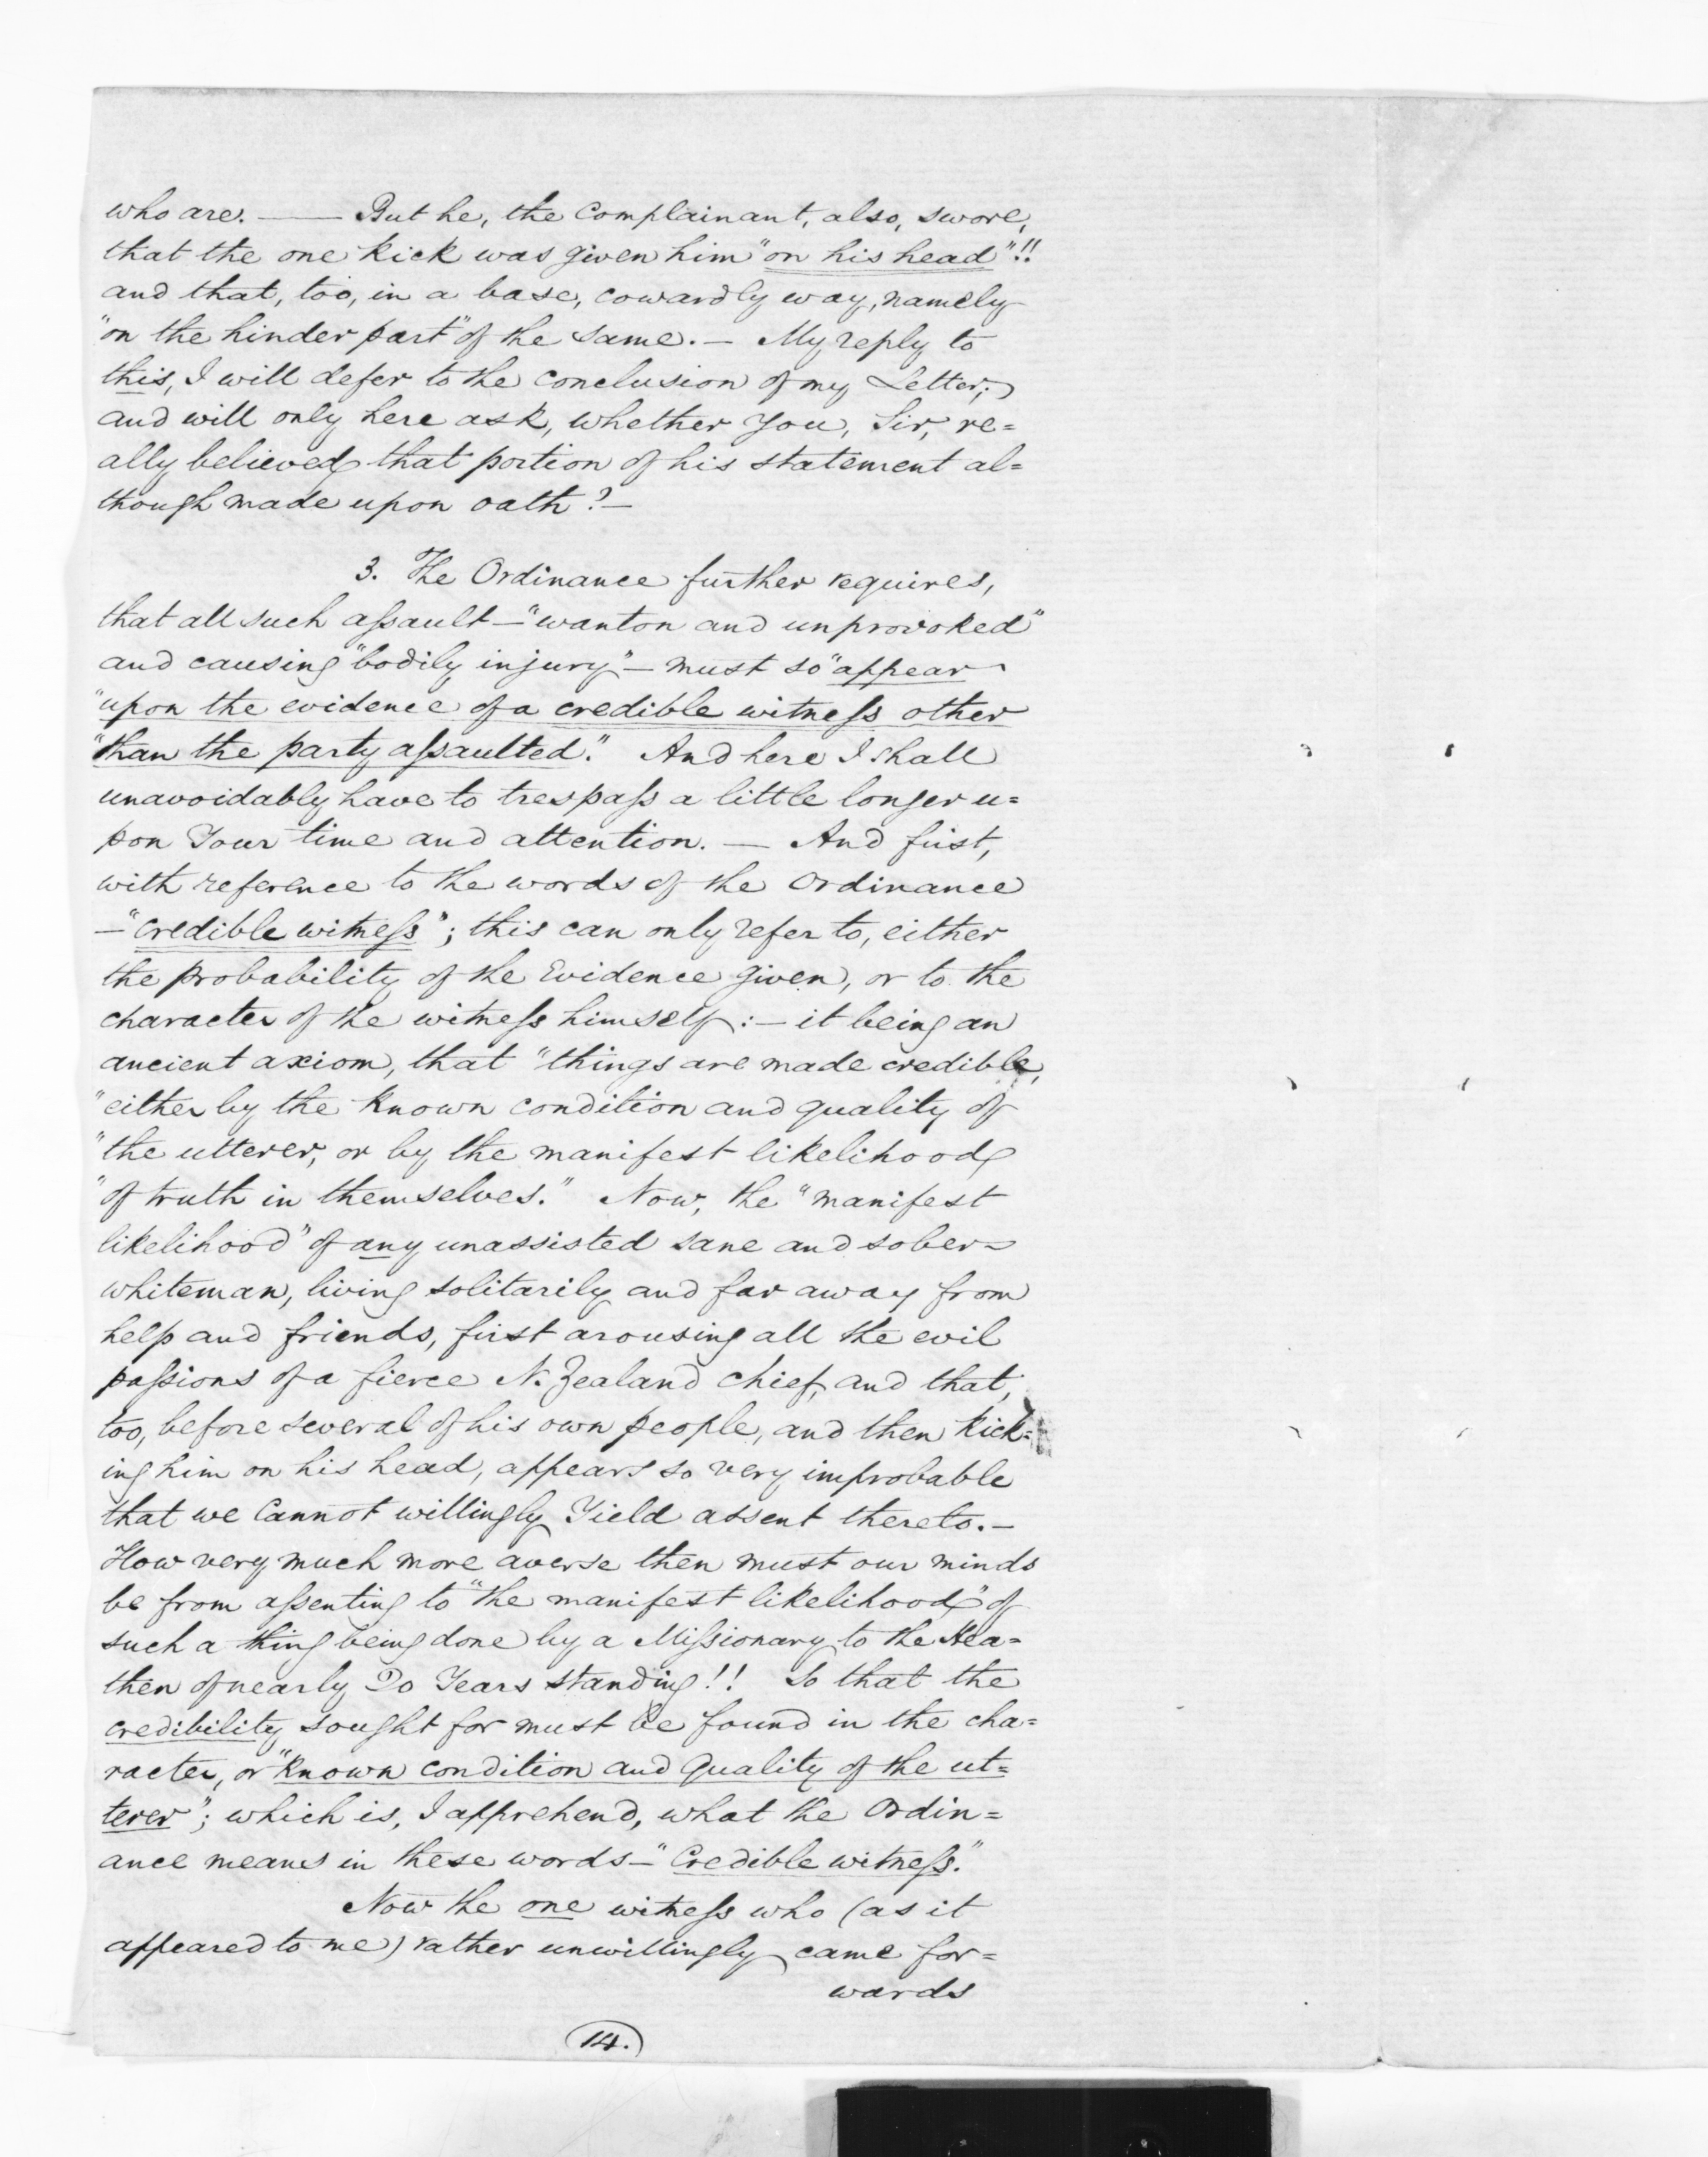 who are. —— But he, the Complainant, also, swore,
that the one kick was given him "on his head"!!
and that, too, in a base, cowardly way, namely
"on the hinder part" of the same. — My reply to
this, I will defer to the conclusion of my Letter;
and will only here ask, whether You, Sir, re=
ally believed that portion of his statement al=
though made upon oath? —
3. The Ordinance further requires,
that all such aſsault — "wanton and unprovoked"
and causing "bodily injury" — must so "appear
"upon the evidence of a credible witneſs other
"than the party aſsaulted." And here I shall
unavoidably have to trespaſs a little longer u=
pon Your time and attention. — And first,
with reference to the words of the Ordinance
— "credible witneſs"; this can only refer to, either
the probability of the Evidence given, or to the
character of the witneſs himself: — it being an
ancient axiom, that "things are made credible,
"either by the known condition and quality of
"the utterer, or by the manifest likelihood
"of truth in themselves." Now, the "manifest
likelihood" of any unassisted sane and sober
whiteman, living solitarily and far away from
help and friends, first arousing all the evil
paſsions of a fierce N. Zealand chief, and that,
too, before several of his own people, and then kick=
ing him on his head, appears so very improbable
that we cannot willingly Yield assent thereto. —
How very much more averse then must our minds
be from aſsenting to "the manifest likelihood" of
such a thing being done by a Miſsionary to the Hea=
then of nearly 20 Years standing!! So that the
credibility sought for must be found in the cha=
racter, or "known condition and quality of the ut=
terer"; which is, I apprehend, what the Ordin=
ance means in these words — "Credible witneſs."
Now the one witneſs who (as it
appeared to me) rather unwillingly came for=
wards
14.